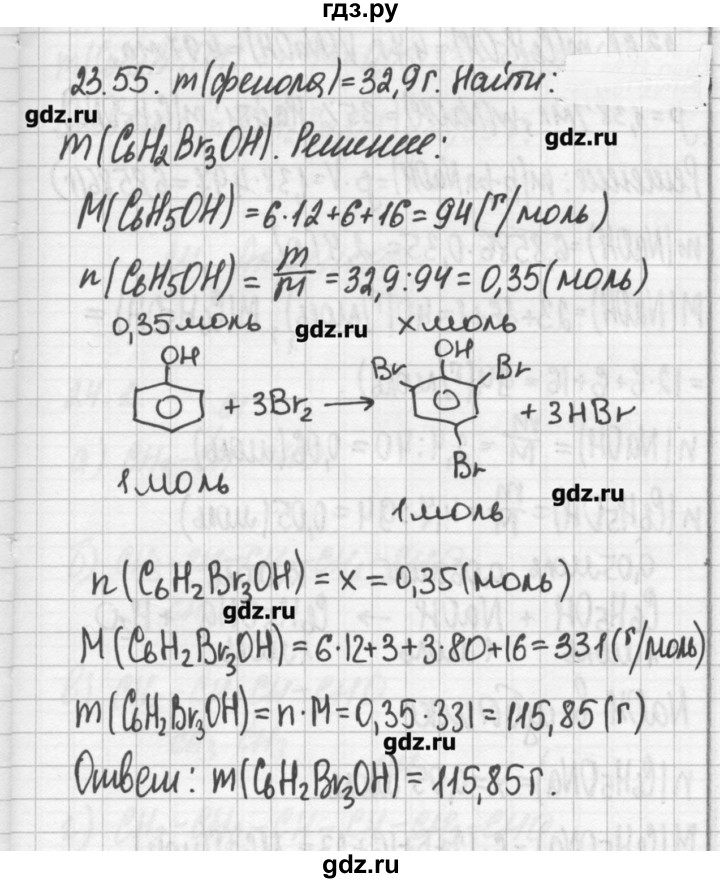 гдз.ру
23.55. m(фенола)=32,9г. Найти:
gdz.ru
m(C6H2Br3OH). Решение:
gdz.ru
M(C6H5OH)=6·12+6+16=94(г/моль)
n(C6H5OH)=m/M=32,9:94=0,35(моль)
0,35моль
gdz.ru
x моль
OH
+ 3Br2 →
Br
OH
Br
Br
+ 3HBr
1 моль
gdz.ru
1 моль
n(C6H2Br3OH)=x=0,35(моль)
gdz.ru
M(C6H2Br3OH)=6·12+3+3·80+16=331(г/моль)
m(C6H2Br3OH)=n·M=0,35·331=115,85(г)
gdz.ru
Ответ: m(C6H2Br3OH)=115,85г.
gdz.ru